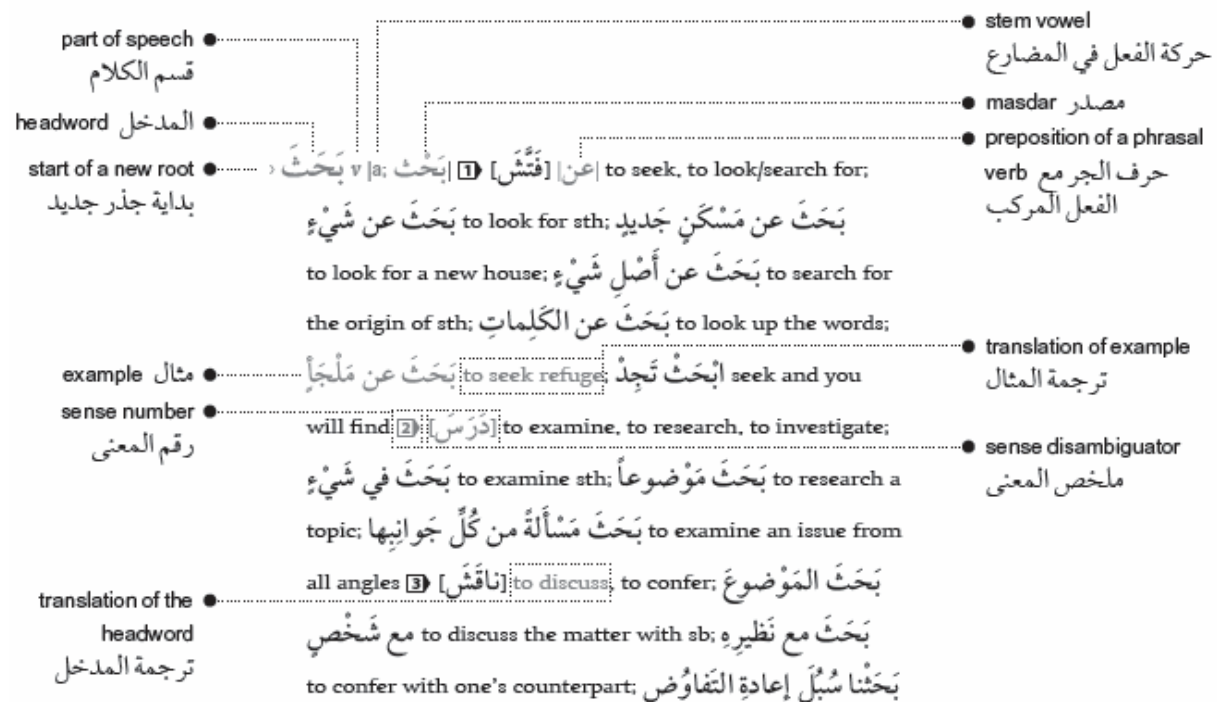 part of speech
قسم الكلام
headword المدخل
start of a new root
بداية جذر جديد
example مثال
sense number
رقم المعنى
translation of the
headword
ترجمة المدخل
‹ بَحَثَ v |a; بَحْث| 1 [فَتَّشَ] |عن| to seek, to look/search for;
بَحَثَ عن شَيْءٍ to look for sth; بَحَثَ عن مَسْكَنٍ جَديدٍ
to look for a new house; بَحَثَ عن أَصْلِ شَيْءٍ to search for
the origin of sth; بَحَثَ عن الكَلِماتِ to look up the words;
بَحَثَ عن مَلْجَأٍ to seek refuge; ابْحَثْ تَجِدْ seek and you
will find 2 [دَرَسَ] to examine, to research, to investigate;
بَحَثَ في شَيْءٍ to examine sth; بَحَثَ مَوْضوعاً to research a
topic; بَحَثَ مَسْأَلةً من كُلِّ جَوانِبِها to examine an issue from
all angles 3 [ناقَشَ] to discuss, to confer; بَحَثَ المَوْضوعَ
مع شَخْصٍ to discuss the matter with sb; بَحَثَ مع نَظيرِهِ
to confer with one's counterpart; بَحَثْنا سُبُلَ إعادةِ التَفاوُضِ
stem vowel
حركة الفعل في المضارع
masdar مصدر
preposition of a phrasal
verb حرف الجر مع
الفعل المركب
translation of example
ترجمة المثال
sense disambiguator
ملخص المعنى